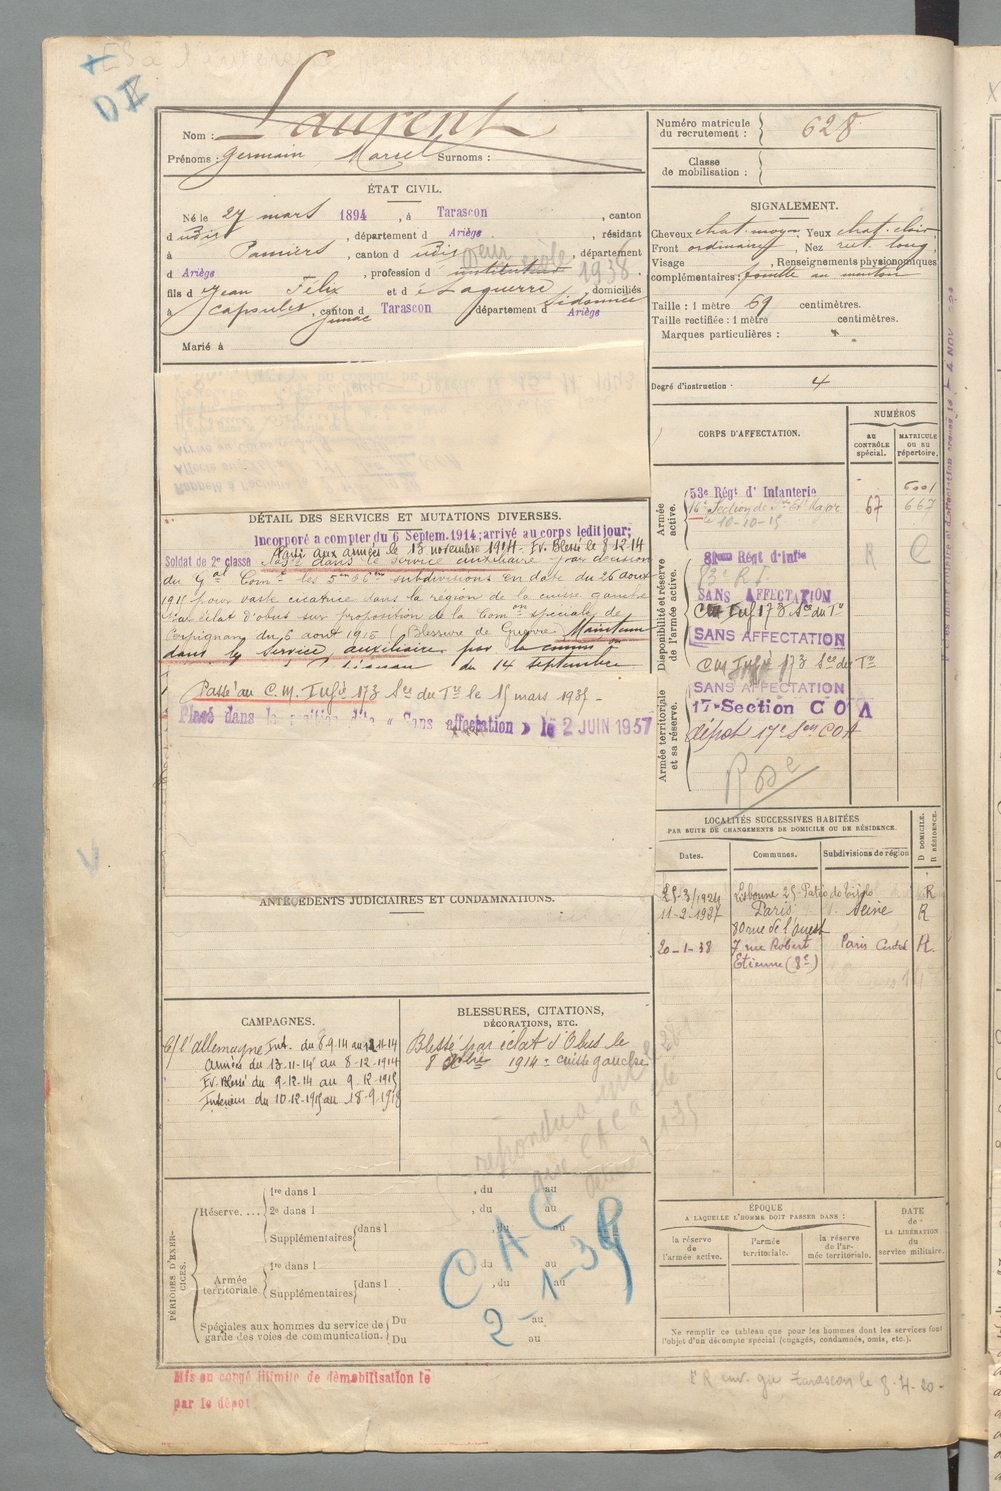 DII
Nom : Laurent
Prénoms : Germain Marcel Surnoms :
Numéro matricule du recrutement : 628
Classe de mobilisation :
ÉTAT CIVIL.
Né le 27 mars 1894, à Tarascon, canton
d udis, département d Ariège, résidant
à Pamiers, canton d udis, département
d Ariège, profession d instituteur
1938
fils d Jean Félix et d e Laguerre Sidonnie, domiciliés
à Capoulet Junac, canton d Tarascon département d Ariège
Marié à
SIGNALEMENT.
Cheveux chat. moyen, Yeux chat. clair
Front ordinaire, Nez rect. long
Visage , Renseignements physionomiques
complémentaires : fossette au menton
Taille : 1 mètre 69 centimètres.
Taille rectifiée : 1 mètre centimètres.
Marques particulières :
Degré d'instruction : 4
CORPS D'AFFECTATION.
NUMÉROS
AU CONTRÔLE spécial.
MATRICULE ou au répertoire.
Armée active.
53e Régt d' Infanterie
10-10-15
67
667
Disponibilité et réserve de l'armée active.
Régt d'Infie
R
C
SANS AFFECTATION
173 Son du Tn
SANS AFFECTATION
CM Infie 173 Son du Tn
Armée territoriale et sa réserve.
SANS AFFECTATION
17e Section COA
dépôt 17e Son COA
DÉTAIL DES SERVICES ET MUTATIONS DIVERSES.
Incorporé a compter du 6 Septem. 1914; arrivé au corps ledit jour;
Parti aux armées le 13 novembre 1914. Ev. Blessé le 8-12-14
Soldat de 2e classe Classé dans le service auxiliaire par décision
du Gal Comt les 5me & 6me subdivisions en date du 26 août
1915 pour vaste cicatrice dans la région de la cuisse gauche
par éclat d'obus sur proposition de la Comon spéciale de
Perpignan du 6 août 1915 (Blessure de Guerre) Maintenu
dans le Service auxiliaire par la commis on
du 14 septembre
Passé au C.M. Infie 173 Son du Tn le 15 mars 1935 -
Placé dans la position dite « Sans affectation » le 2 JUIN 1937
ANTÉCÉDENTS JUDICIAIRES ET CONDAMNATIONS.
LOCALITÉS SUCCESSIVES HABITÉES
PAR SUITE DE CHANGEMENTS DE DOMICILE OU DE RÉSIDENCE.
D DOMICILE. R RÉSIDENCE.
Dates. Communes. Subdivisions de région
25-3/1924 Lisbonne 25 Patéo do Tijolo R
11-2-1937 Paris Seine R
80 rue de l'Ouest
20-1-38 7 rue Robert Paris Central R.
Etienne (8e)
CAMPAGNES.
C/ l'allemagne Int. du 8-9-14 au 12-11-14
Armées du 13-11-14 au 8-12-1914
Ev. Blessé du 9-12-14 au 9-12-1915
Intérieur du 10-12-1915 au 18-9-1918
BLESSURES, CITATIONS,
DÉCORATIONS, ETC.
Blessé par éclat d'Obus le
8 Xbre 1914 - cuisse gauche
répondu
CAC
2-1-39
PÉRIODES D'EXERCICES.
Réserve....
1re dans l , du au
2e dans l , du au
Supplémentaires dans l , du au
Armée territoriale
1re dans l , du au
Supplémentaires dans l , du au
Spéciales aux hommes du service de garde des voies de communication.
Du au
Du au
ÉPOQUE
A LAQUELLE L'HOMME DOIT PASSER DANS :
la réserve de l'armée active.
l'armée territoriale.
la réserve de l'armée territoriale.
DATE de LA LIBÉRATION du service militaire.
Ne remplir ce tableau que pour les hommes dont les services font
l'objet d'un décompte spécial (engagés, condamnés, omis, etc.).
Mis en congé illimité de démobilisation le
par le dépot
FR env. gie Tarascon le 8-4-20-